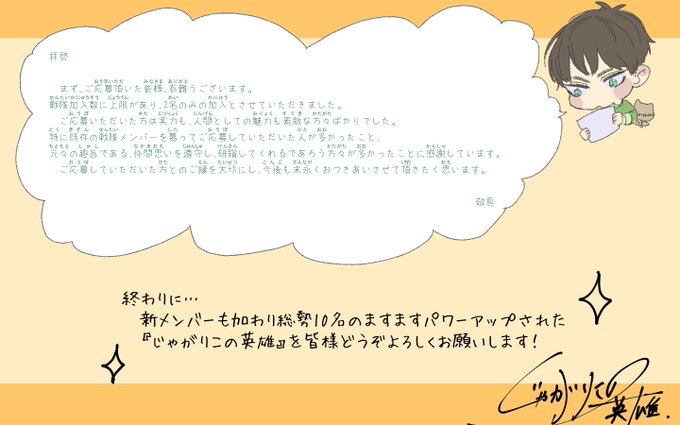 拝啓
まず、ご応募頂いた皆様、有難うございます。
戦隊加入数に上限があり、2名のみの加入とさせていただきました。
ご応募いただいた方は実力も、人間としての魅力も素敵な方々ばかりでした。
特に既存の戦隊メンバーを慕ってご応募していただいた人が多かったこと、
元々の趣旨である、仲間思いを遵守し、研鑽してくれるであろう方々が多かったことに感謝しています。
ご応募していただいた方とのご縁を大切にし、今後も末永くおつきあいさせて頂きたく思います。
敬具
終わりに…
新メンバーも加わり総勢10名のますますパワーアップされた
『じゃがりこの英雄』を皆様どうぞよろしくお願いします!
じゃがりこの
英雄.